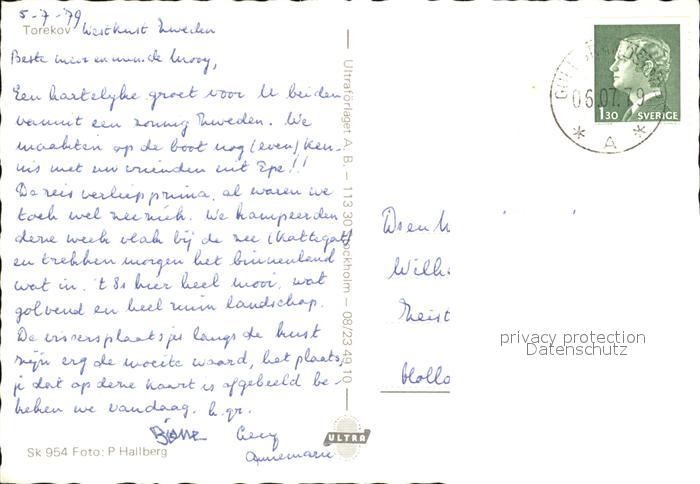 5-7-'79
Torekov Westkust Zweden
Beste mevr en mr. de Mooy,
Een hartelijke groet voor U beiden
vanuit een zonnig Zweden. We
maakten op de boot nog (even) ken-
nis met uw vrienden uit Epe!!
De reis verliep prima, al waren we
toch wel zeeziek. We kampeerden
deze week vlak bij de zee (Kattegat)
en trekken morgen het binnenland
wat in. 't Is hier heel mooi, wat
golvend en heel ruim landschap.
De vissersplaatsjes langs de kust
zijn erg de moeite waard, het plaats-
je dat op deze kaart is afgebeeld be-
keken we vandaag. h.gr.
Cecy
Annemarie
Sk 954 Foto: P Hallberg
ULTRA
Ultraförlaget A. B. – 113 30 Stockholm – 08/23 49 10
06.07.79
* A *
1 30 SVERIGE
Wilh
Zeist
Holla
privacy protection
Datenschutz